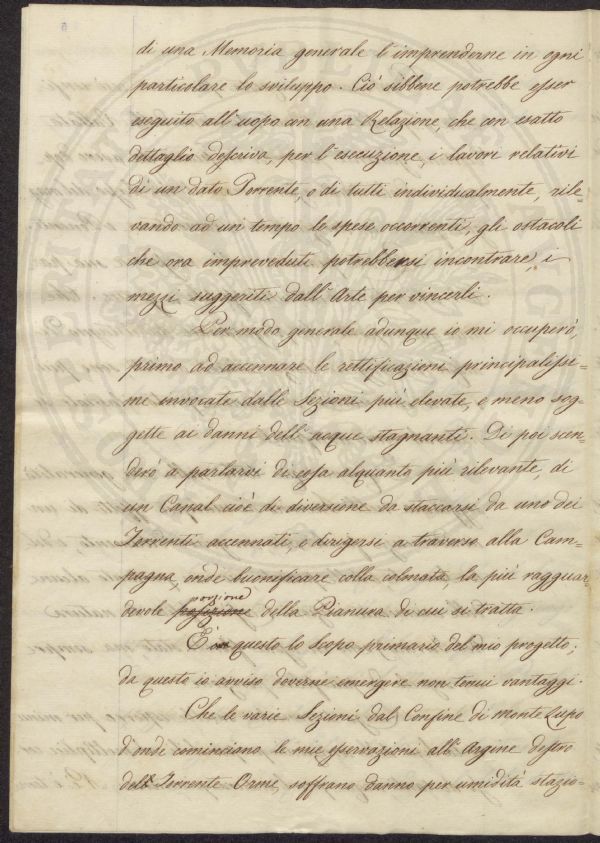 di una Memoria generale l'imprenderne in ogni
particolare lo sviluppo. Ciò sibbene potrebbe esser
eseguito all'uopo con una Relazione, che con esatto
dettaglio descriva, per l'esecuzione, i lavori relativi
di un dato Torrente, o di tutti individualmente, rile-
vando ad un tempo le spese occorrenti, gli ostacoli
che ora impreveduti potrebbersi incontrare, i
mezzi suggeriti dall'Arte per vincerli.
Per modo generale adunque io mi occuperò,
primo ad accennare le rettificazioni principalissi-
me invocate dalle Sezioni più elevate, e meno sog-
gette ai danni dell'acque stagnanti. Di poi scen-
derò a parlarvi di cosa alquanto più rilevante, di
un Canal cioè di diversione da staccarsi da uno dei
Torrenti accennati, e dirigersi a traverso alla Cam-
pagna, onde buonificare colla colmata, la più ragguar-
porzione
devole posizione della Pianura di cui si tratta.
È questo lo scopo primario del mio progetto;
da questo io avviso doverne emergere non tenui vantaggi.
Che le varie Sezioni dal Confine di Monte Lupo
d'onde cominciano le mie osservazioni all'Argine destro
del Torrente Orme, soffrano danno per umidità stazio-